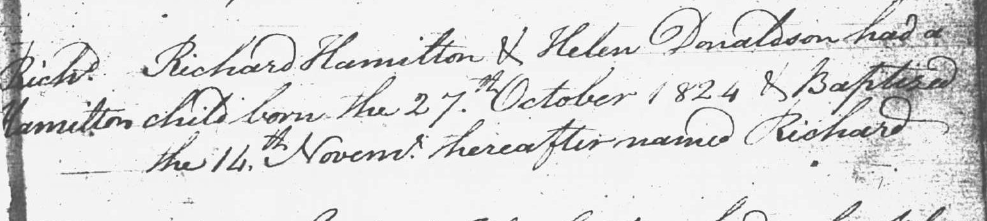 Richd. Richard Hamilton & Helen Donaldson had a
Hamilton child born the 27.th October 1824 & Baptized
the 14.th Novemr. thereafter named Richard